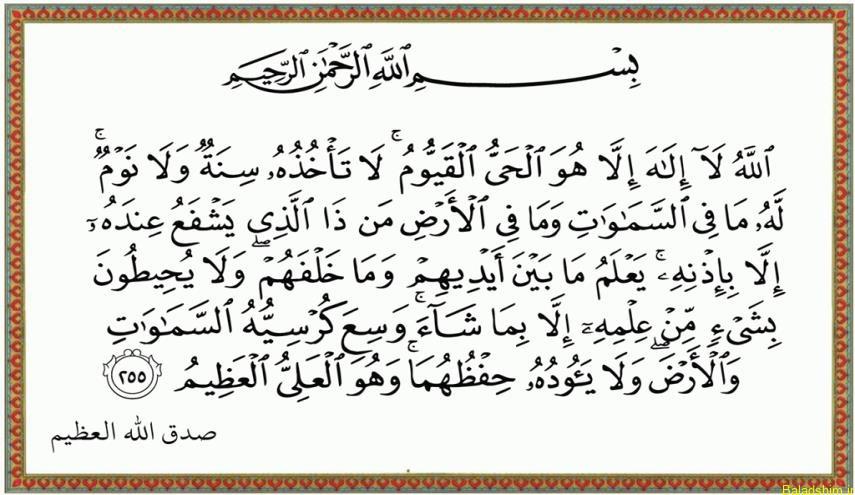 بِسْمِ ٱللَّهِ ٱلرَّحْمَٰنِ ٱلرَّحِيمِ
ٱللَّهُ لَآ إِلَٰهَ إِلَّا هُوَ ٱلْحَىُّ ٱلْقَيُّومُ ۚ لَا تَأْخُذُهُۥ سِنَةٌ وَلَا نَوْمٌ ۚ
لَّهُۥ مَا فِى ٱلسَّمَٰوَٰتِ وَمَا فِى ٱلْأَرْضِ مَن ذَا ٱلَّذِى يَشْفَعُ عِندَهُۥٓ
إِلَّا بِإِذْنِهِۦ ۚ يَعْلَمُ مَا بَيْنَ أَيْدِيهِمْ وَمَا خَلْفَهُمْ ۖ وَلَا يُحِيطُونَ
بِشَىْءٍ مِّنْ عِلْمِهِۦٓ إِلَّا بِمَا شَآءَ ۚ وَسِعَ كُرْسِيُّهُ ٱلسَّمَٰوَٰتِ
وَٱلْأَرْضَ ۖ وَلَا يَـُٔودُهُۥ حِفْظُهُمَا ۚ وَهُوَ ٱلْعَلِىُّ ٱلْعَظِيمُ ٢٥٥
صدق الله العظيم
Baladshim.ir